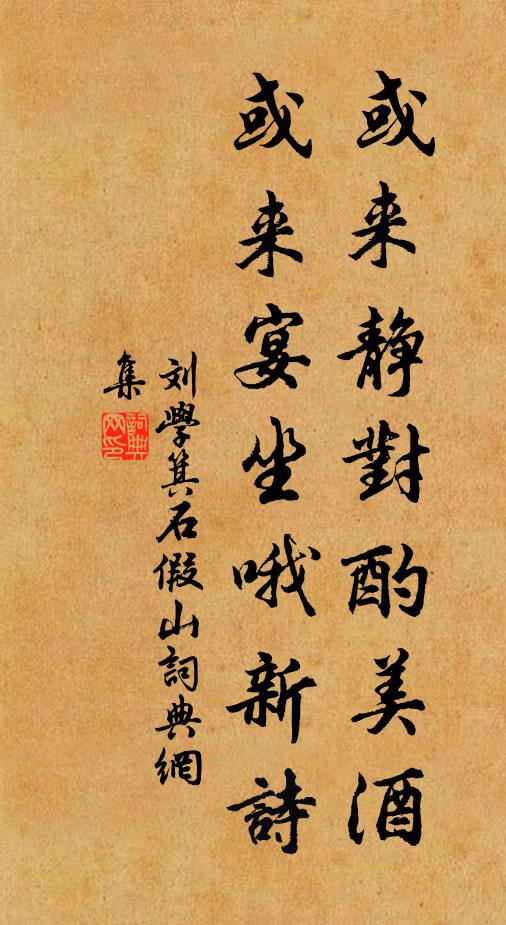 或来静對酌美酒
或来宴坐哦新詩
刘學箕石假山詞典網
集
詞典網印